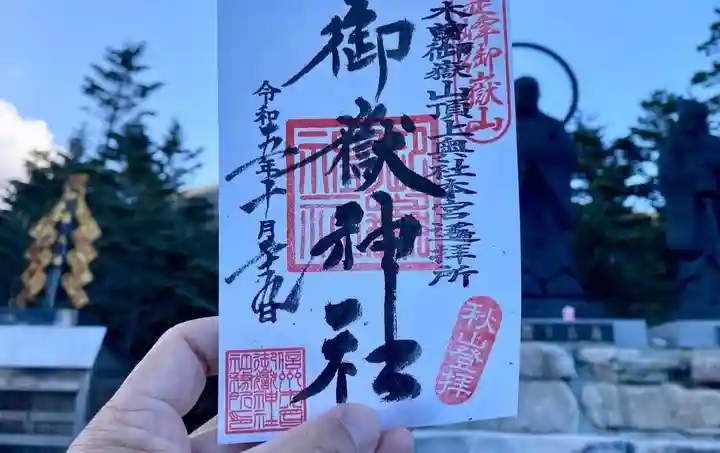 霊峰御嶽山
木曽御嶽山頂上奥社本宮遙拝所
御嶽神社
秋山登拝
令和五年十月日
御嶽神社